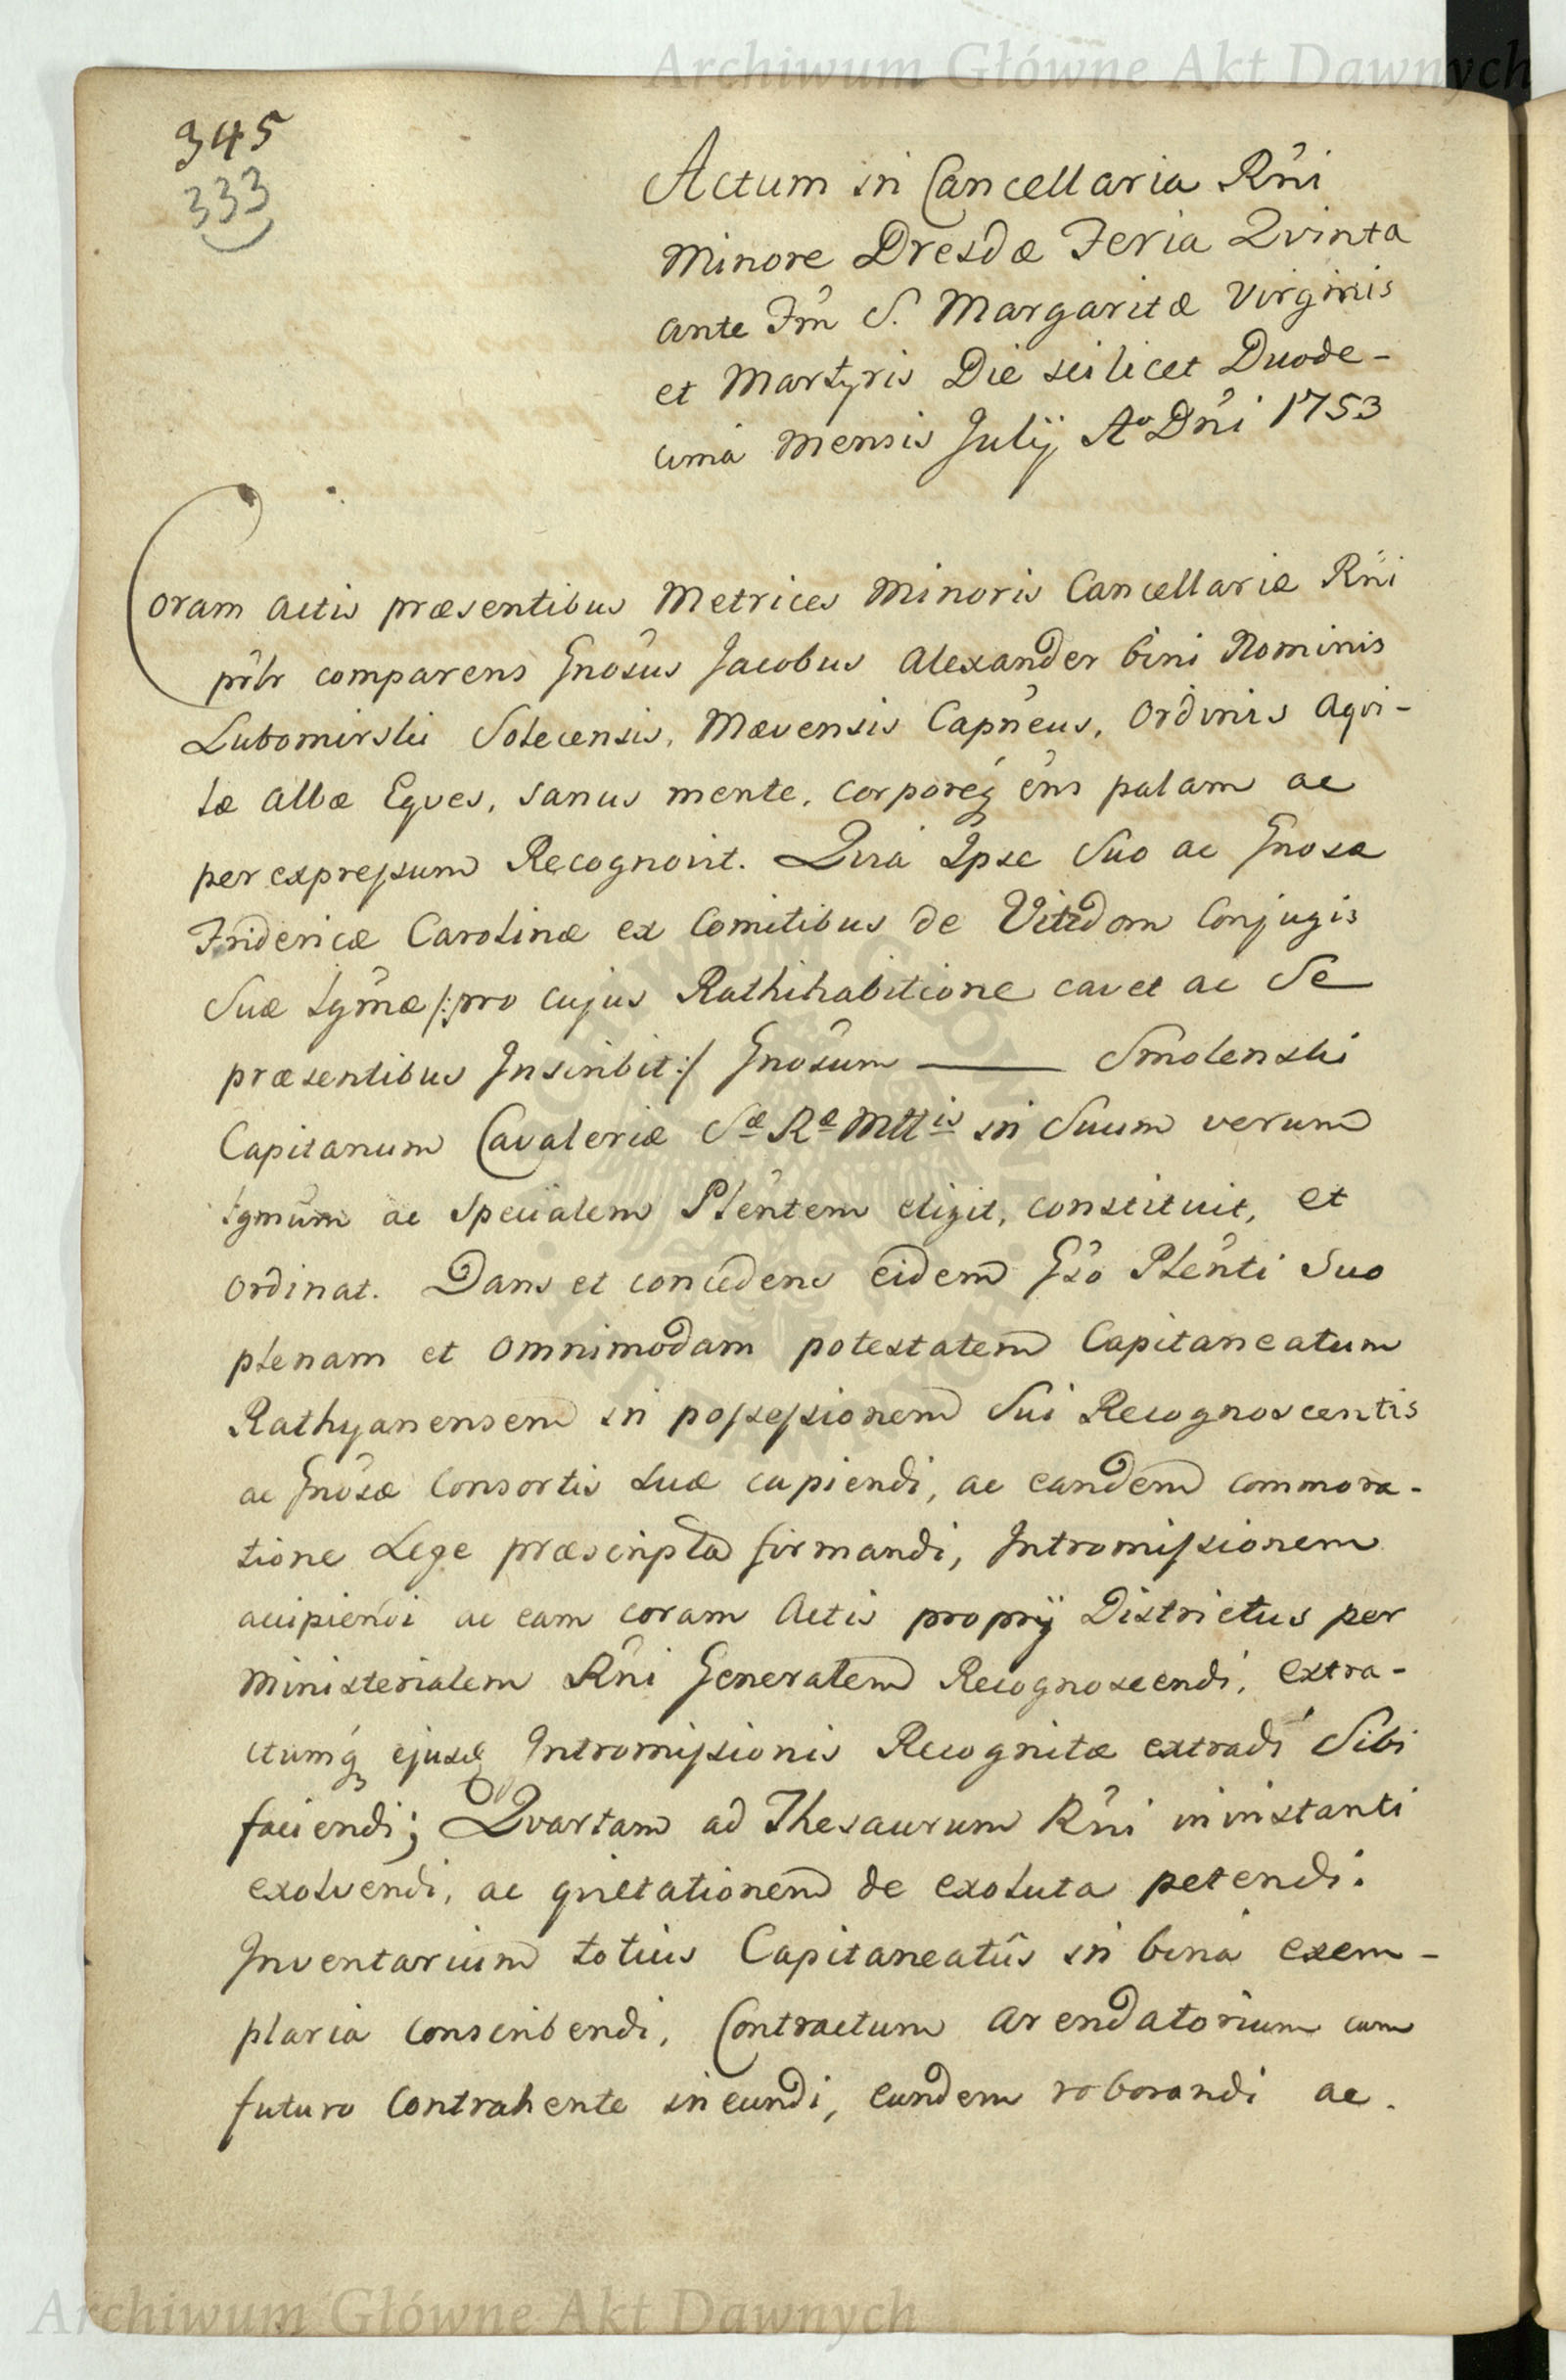 Archiwum Główne Akt Dawnych
345
333
Actum in Cancellaria Rñi
Minore Dresdæ Feria Qvinta
ante Fm̃ S. Margaritæ Virginis
et Martyris Die scilicet Duode-
cima Mensis Julij Aº Dñi 1753
Coram Actis præsentibus Metrices Minoris Cancellariæ Rñi
prlr comparens Gnosus Jacobus Alexander bini Nominis
Lubomirski Solecensis, Mævensis Capneus, Ordinis Aqvi-
læ Albæ Eqves, sanus mente, corporeq̃ ens palam ac
per expressum Recognovit. Qvia Ipse Suo ac Gnosæ
Fridericæ Carolinæ ex Comitibus de Vitzdom Conjugis
Suæ lgmæ /:pro cujus Rathihabitione cavet ac Se
præsentibus Inscribit:/ Gnosum ——— Smolenski
Capitanum Cavaleriæ Sæ Ræ Mttis in Suum verum
lgmum ac Specialem Plentem eligit, constituit, et
ordinat. Dans et concedens eidem Gso Plenti Suo
plenam et omnimodam potestatem Capitaneatum
Rathyanensem in possessionem Sui Recognoscentis
ac Gnosæ Consortis suæ capiendi, ac eandem commora-
tione Lege præscripta firmandi, Intromissionem
accipiendi ac eam coram Actis proprij Districtus per
Ministerialem Rñi Generalem Recognoscendi, extra-
ctumq̃ ejusd Intromissionis Recognitæ extradi Sibi
faciendi; Qvartam ad Thesaurum Rñi in instanti
exolvendi, ac qvietationem de exoluta petendi.
Inventarium totius Capitaneatûs in bina exem-
plaria conscribendi, Contractum arendatorium cum
futuro Contrahente ineundi, eundem roborandi ac.
Archiwum Główne Akt Dawnych